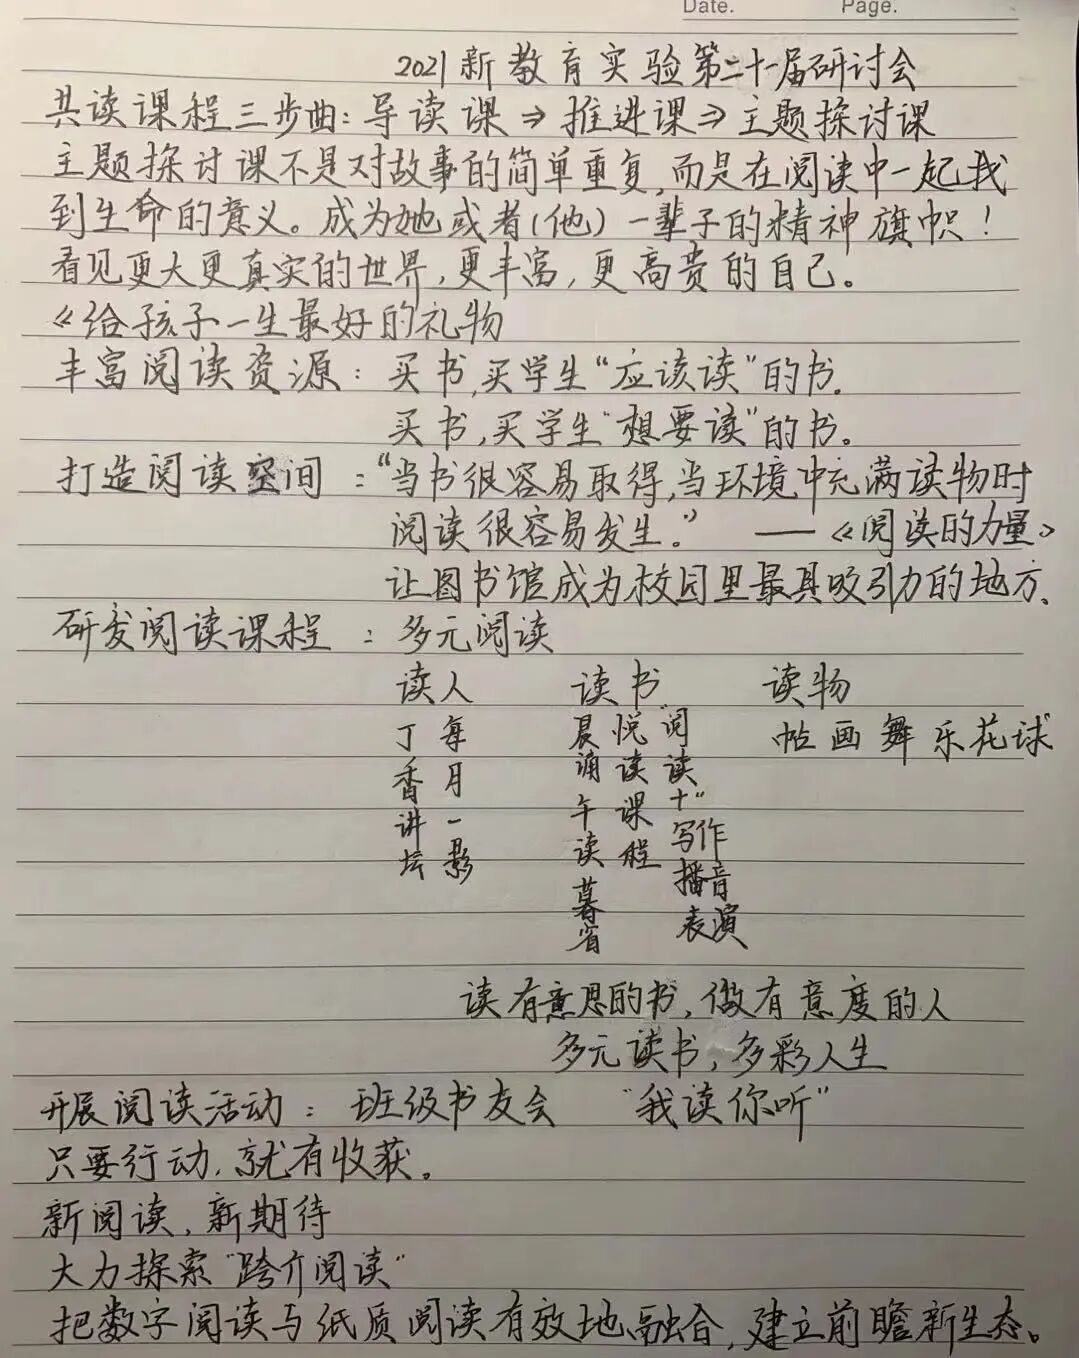 Date. Page.
2021新教育实验第二十一届研讨会
共读课程三步曲:导读课⇒推进课⇒主题探讨课
主题探讨课不是对故事的简单重复,而是在阅读中一起找
到生命的意义。成为她或者(他)一辈子的精神旗帜!
看见更大更真实的世界,更丰富,更高贵的自己。
《给孩子一生最好的礼物
丰富阅读资源:买书,买学生“应该读”的书.
买书,买学生“想要读”的书。
打造阅读空间:“当书很容易取得,当环境中充满读物时
阅读很容易发生。” ——《阅读的力量》
让图书馆成为校园里最具吸引力的地方.
研发阅读课程:多元阅读
读人 读书 读物
丁香讲坛
每月一影
晨诵午读暮省
悦读课程
“阅读十”写作播音表演
帖画舞乐花球
读有意思的书,做有意度的人
多元读书,多彩人生
开展阅读活动:班级书友会 “我读你听”
只要行动.就有收获。
新阅读,新期待
大力探索“跨介阅读”
把数字阅读与纸质阅读有效地融合,建立前瞻新生态。